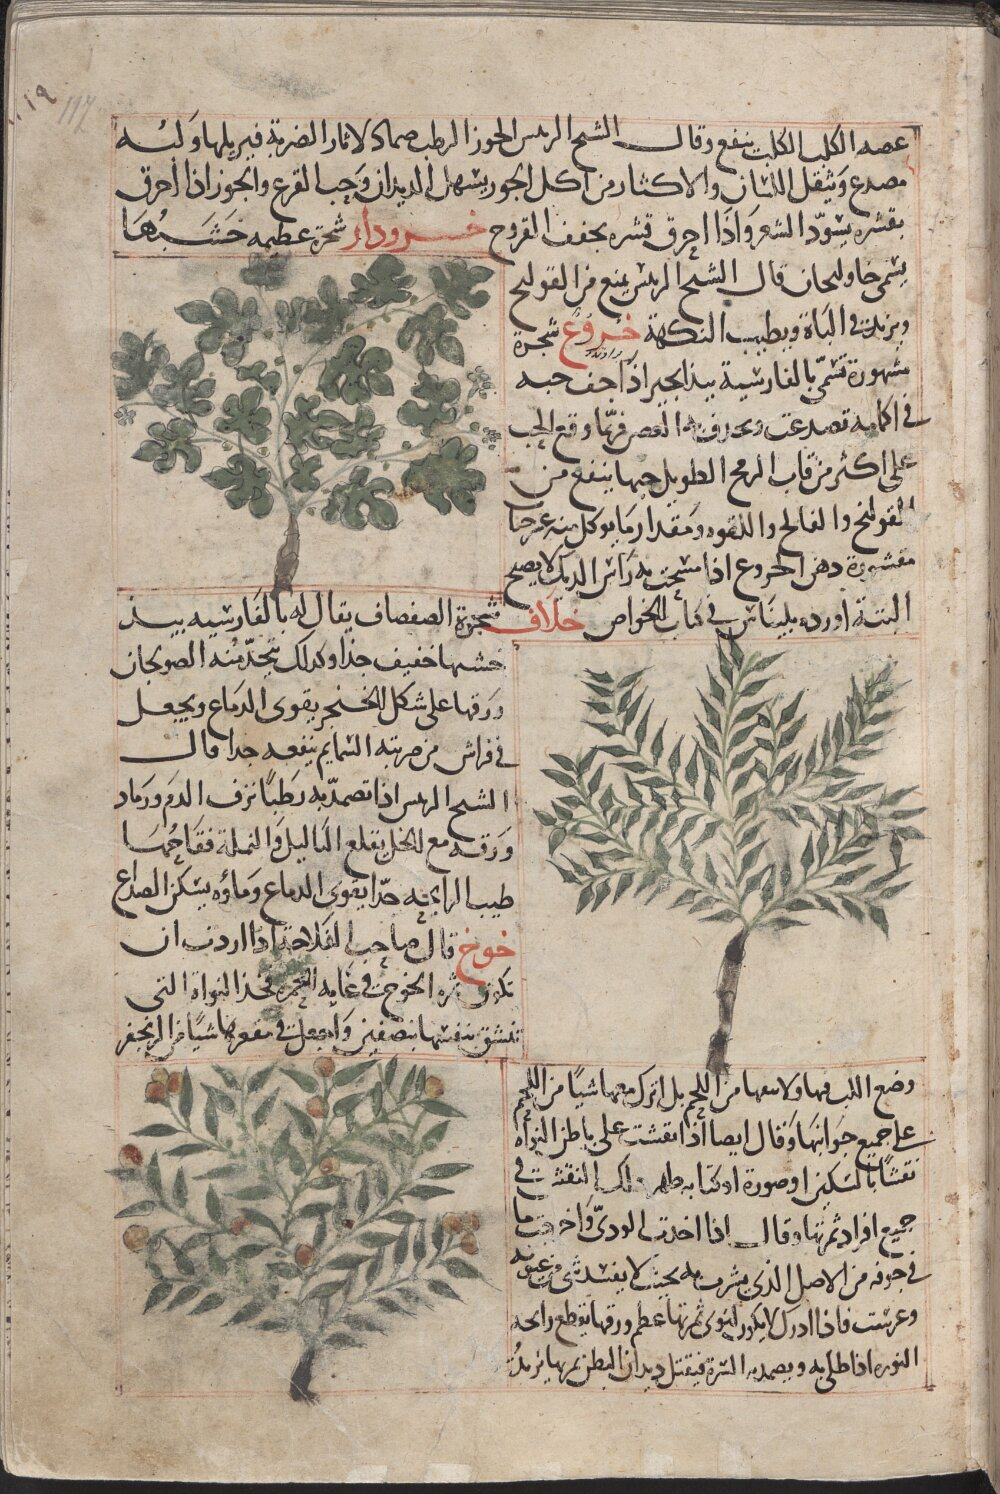 ١١٩ 117
عضه الكلب الكلب ينفع وقال الشيخ الرئيس الجوز الرطب ضماد لاثار الضربة فيزيلها ولبه
مصدع ويثقل اللسان والاكثار من اكل الجوز يسهل الديدان وحب القرع والجوز اذا احرق
بقشره يسود الشعر واذا احرق قشره يجفف القروح خسرودار شجرة عظيمه خشبها
يسمى خاولنجان قال الشيخ الرئيس ينفع من القولنج
ويزيد في الباة ويطيب النكهة خروع شجرة
مشهورة تسمى بالفارسية بيد انجير اذا جف حبه
في اكمامه تصدعت فربما وقع الحب
على اكثر من قاب الرمح الطويل حبها ينفع من
القولنج والفالج واللقوه ومقدار ما يوكل منه عشر حبات
مقشورة دهن الخروع اذا مسحت به راس الديك لا يصيح
البتة اورده بليناس في كتاب الخواص خلاف
شجرة الصفصاف يقال له بالفارسيه بيد
خشبها خفيف جدا وكذلك يتخذ منه الصولجان
ورقها على شكل الخنجر يقوى الدماغ ويجعل
في فراش من ضربته السمايم ينفعه جدا قال
الشيخ الرئيس اذا تضمد به رطبا نزف الدم ورماد
ورقه مع الخل يقلع الثاليل والنملة فقاحها
طيب الرايحه جدا يقوى الدماغ وماؤه يسكن الصداع
خوخ قال صاحب الفلاحة اذا اردت ان
تكون ثمرة الخوخ في غايه الحمرة فخذ النواة التي
تنشق بنفسها بنصفين واجعل في مقعرها شيا من الزنجفر
وضع اللب فيها ولا من اللحم بل اترك معها شيا من اللحم
على جميع جوانبها وقال ايضا اذا نقشت على باطن النواة
نقشا بالسكين او صورة او كتابه ظهر ذلك النقش في
جميع افراد ثمرتها وقال اذا اخذت الودي واخرجت ما
في جوفه من الاصل الذي يشرب به بحيث لا يفسد شي من عيونه
وغرست فاذا ادرك لا يكون لنوى ثمرتها عظم ورقها يقطع رايحه
النوره اذا طلي به ويضمد به السرة فيقتل ديدان البطن ثمرتها يزيد